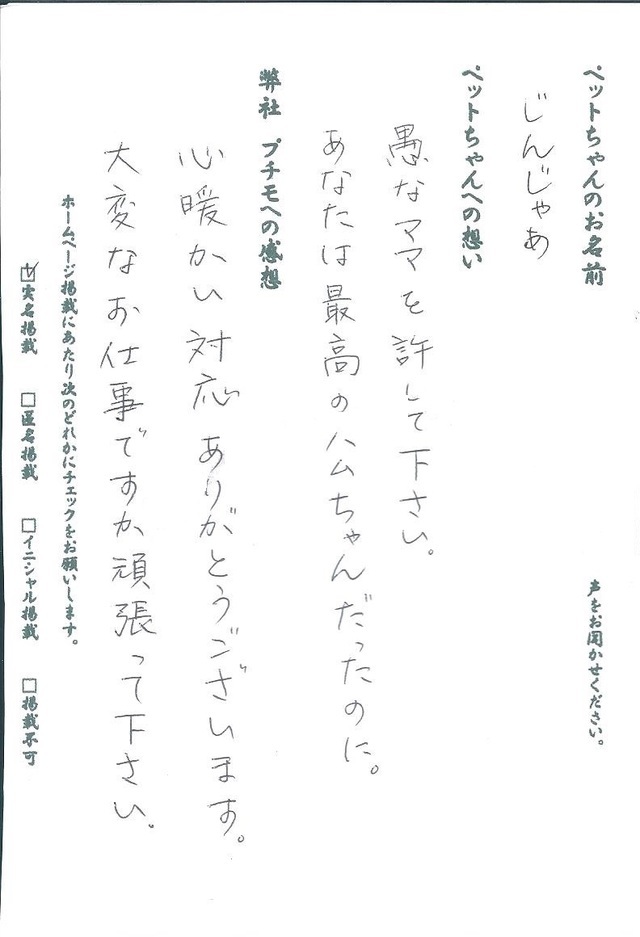 ペットちゃんのお名前
声をお聞かせください。
じんじゃあ
ペットちゃんへの想い
愚なママを許して下さい。
あなたは最高のハムちゃんだったのに。
弊社 プチモへの感想
心暖かい対応ありがとうございます。
大変なお仕事ですか頑張って下さい。
ホームページ掲載にあたり次のどれかにチェックをお願いします。
☑実名掲載 □匿名掲載 □イニシャル掲載 □掲載不可